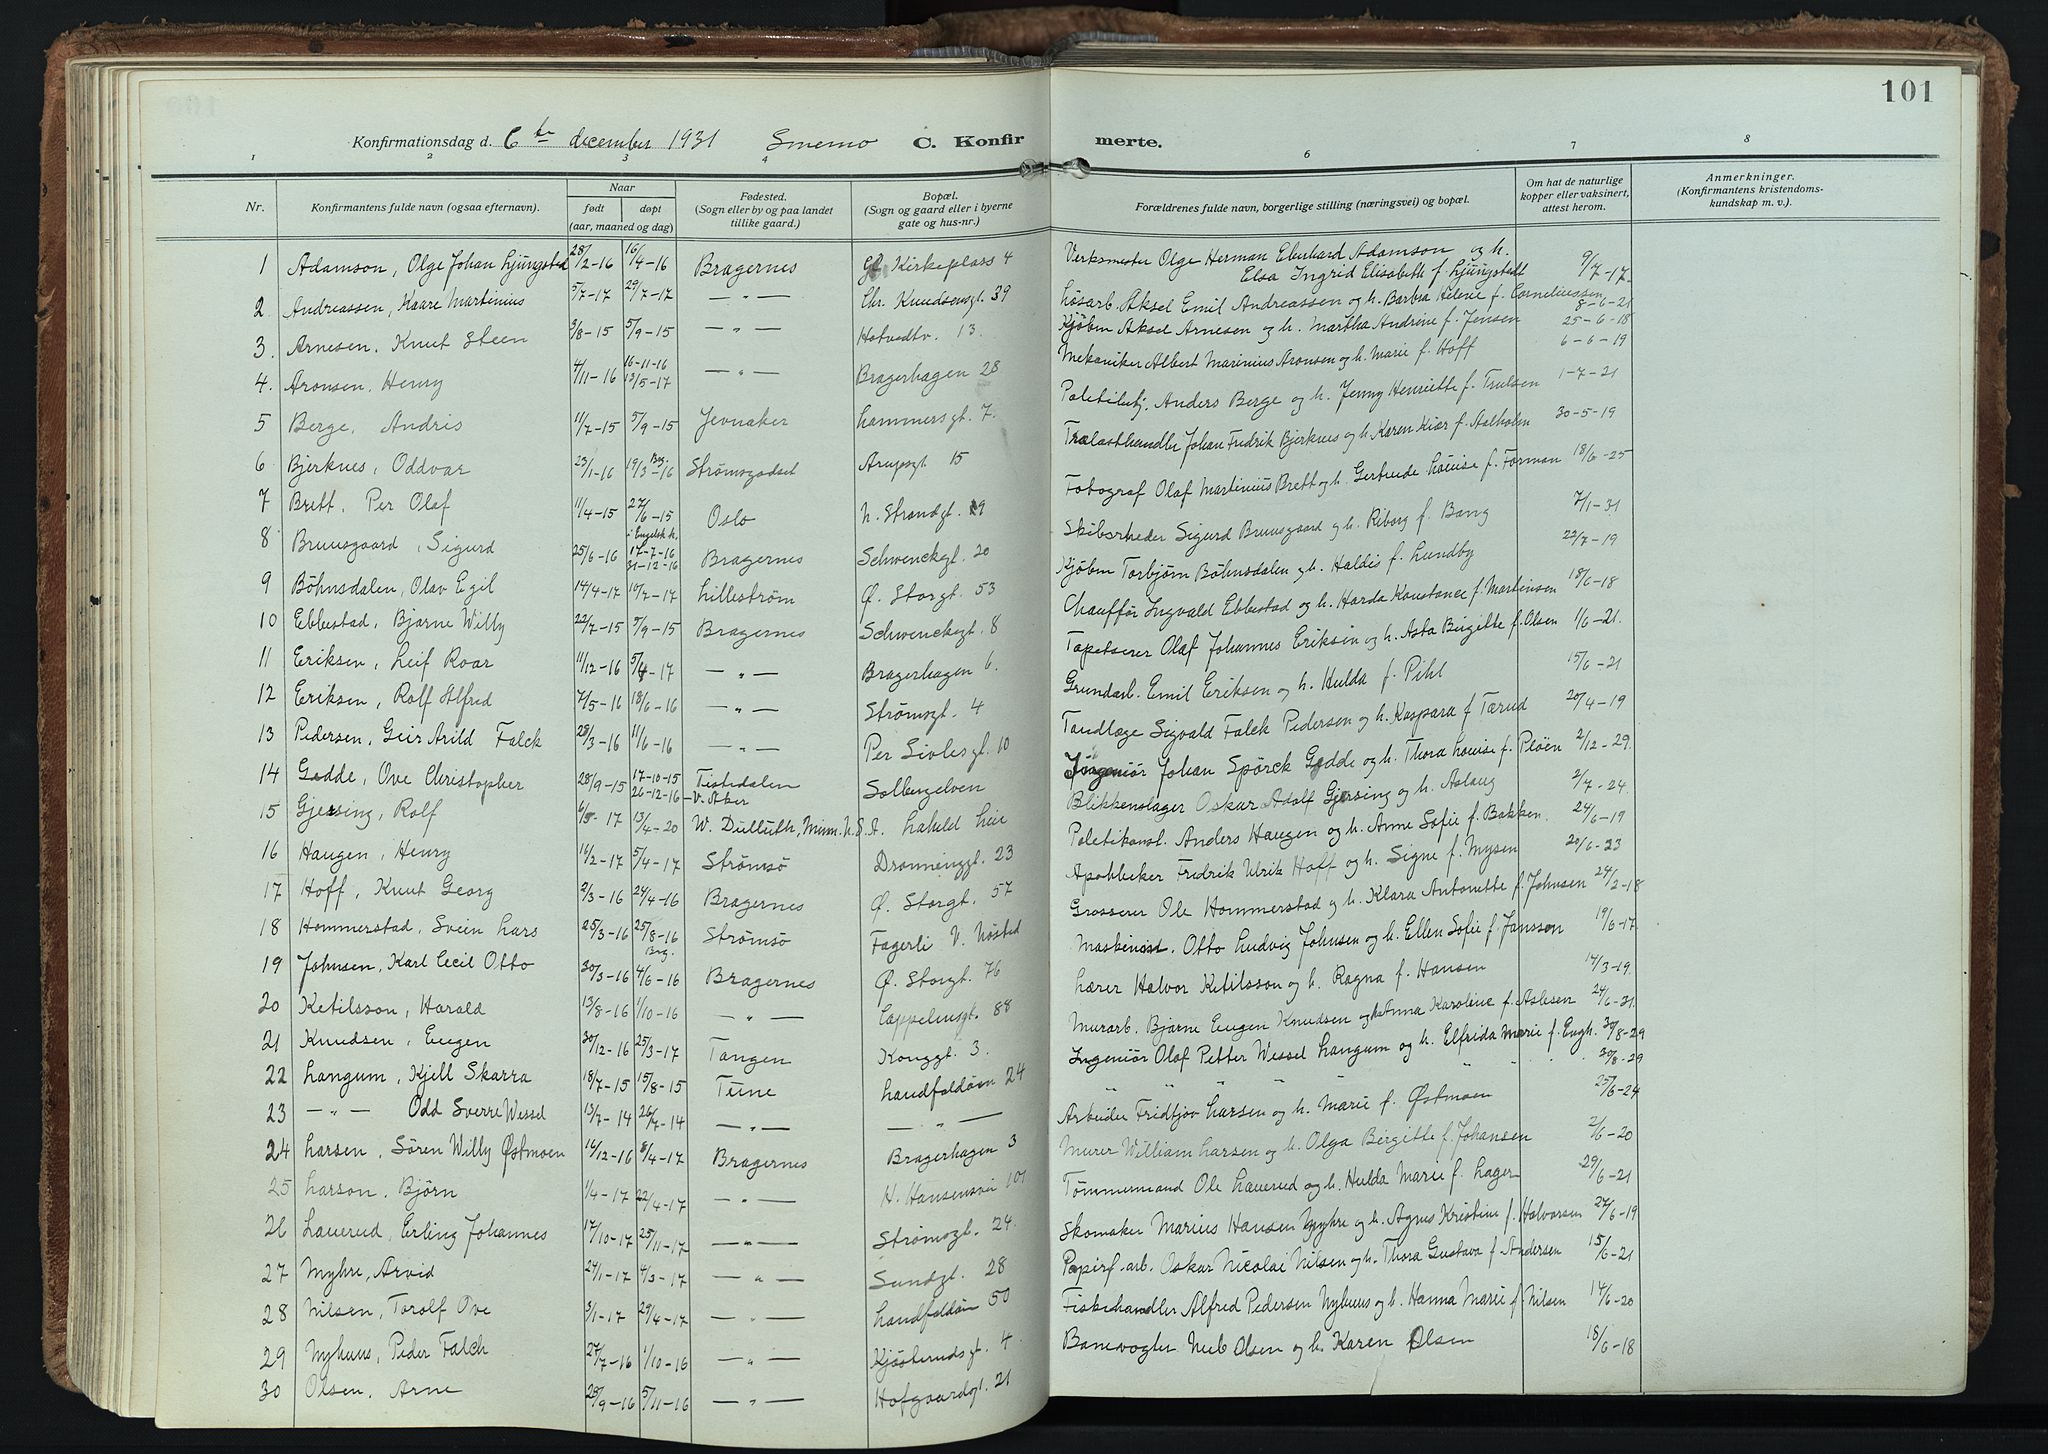 101
Konfirmationsdag d. 6te december 1931 Smemo C. Konfirmerte.
1 2 3 4 6 7 8
Nr. Konfirmantens fulde navn (ogsaa efternavn). Naar født døpt (aar, maaned og dag) Fødested. (Sogn eller by og paa landet tillike gaard.) Bopæl. (Sogn og gaard eller i byerne gate og hus-nr.) Forældrenes fulde navn, borgerlige stilling (næringsvei) og bopæl. Om hat de naturlige kopper eller vaksinert, attest herom. Anmerkninger. (Konfirmantens kristendomskundskap m. v.).
1 Adamson, Olge Johan Ljungsted 28/2-16 16/4-16 Bragernes Gl. Kirkeplass 4 Verksmester Olge Herman Eberhard Adamson og h. Elsa Ingrid Elisabeth f. Ljungstedt 9/7-17
2 Andreassen, Kaare Martinius 5/7-17 29/7-17 —"— Chr. Knudsensgt. 39 Løsarb. Aksel Emil Andreassen og h. Barbra Helene f. Corneliussen 8-6-21
3. Arnesen, Knut Steen 3/8-15 5/9-15 —"— Hotvedtv. 13. Kjøbm Aksel Arnesen og h. Martha Andrine f. Jensen 25-6-18
4. Aronsen, Henry 4/11-16 16-11-16 13/5-17 —"— Bragerhagen 28 Mekaniker Albert Marinius Aronsen og h. Marie f. Hoff 6-6-19
5 Berge, Andris 11/7-15 5/9-15 Jevnaker Lammersgt. 7. Politibetj. Anders Berge og h. Jenny Henriette f. Trulsen 1-7-21
6 Bjerknes, Oddvar 23/1-16 19/3-16 Brg. Strømsgodset Arupsgt 15 Trælasthandler Johan Fredrik Bjerknes og h. Karen Kiær f. Aalholm 30-5-19
7 Brett, Per Olaf 11/4-15 27/6-15 i Engelsk k. Oslo N. Strandgt. 19 Fotograf Olaf Martinius Brett og h. Gertrude Louise f. Forman 18/6-25
8 Bruusgaard, Sigurd 25/6-16 17-7-16 31-12-16 Bragernes Schwenckegt 20 Skibsrheder Sigurd Bruusgaard og h. Riborg f. Bang 7/1-31
9 Böhnsdalen, Olav Egil 14/4-17 10/7-17 Lillestrøm Ø. Storgt. 53 Kjøbm Torbjørn Böhnsdalen og h. Haldis f. Lundby 22/7-19
10 Ebbestad, Bjarne Willy 22/7-15 5/9-15 Bragernes Schwenckegt. 8 Chauffør Ingvald Ebbestad og h. Harda Konstance f. Martinsen 18/6-18
11 Eriksen, Leif Roar 11/12-16 5/4-17 —"— Bragerhagen 6. Tapetserer Olaf Johannes Eriksen og h. Asta Birgitte f. Olsen 1/6-21.
12 Eriksen, Rolf Alfred 7/5-16 18/6-16 —"— Strømsgt. 4 Grundarb. Emil Eriksen og h. Hulda f. Pihl 15/6-21
13 Pedersen, Geir Arild Falck 28/3-16 11/6-16 —"— Per Sivlesgt. 10 Tandlæge Sigvald Falck Pedersen og h. Kaspara f Tærud 20/4-19
14 Gedde, Ove Christopher 28/9-15 17-10-15 26-12-16 Tistedalen V. Aker Solbergelven Ingeniør Johan Spörck Gedde og h. Thora Louise f. Plöen 2/12-29.
15 Gjersing, Rolf 6/5-17 13/4-20 W. Dulluth, Minn. U.S.A. Laheld Lier Blikkenslager Oskar Adolf Gjersing og h. Aslaug 2/7-24.
16 Haugen, Henry 14/2-17 5/4-17 Strømsø Dronninggt. 23 Politikonst. Anders Haugen og h. Anne Sofie f. Bakken. 24/6-19
17 Hoff, Knut Georg 2/3-16 24/4-16 Bragernes Ø. Storgt. 57 Apotheker Fredrik Ulrik Hoff og h. Signe f. Mysen 20/6-23
18 Hommerstad, Svein Lars 25/3-16 25/8-16 Brg. Strømsø Fagerli V. Nøsted Grosserer Ole Hommerstad og h. Klara Antonette f. Johnsen 24/2-18
19 Johnsen, Karl Cecil Otto 30/3-16 4/6-16 Bragernes Ø. Storgt. 76 Maskinist. Otto Ludvig Johnsen og h. Ellen Sofie f. Jansson 19/6-17.
20 Ketilsson, Harald 13/8-16 1/10-16 —"— Cappelensgt. 88 Lærer Halvor Ketilsson og h. Ragna f. Hansen 14/3-19.
21 Knudsen, Eugen 30/12-16 25/3-17 Tangen Konggt. 3. Murarb. Bjarne Eugen Knudsen og h. Anna Karoline f. Aslesen 24/6-21.
22 Langum, Kjell Skarra 18/7-15 15/8-15 Teine Landfaldøen 24 Ingeniør Olaf Petter Wessel Langum og h. Elfrida Marie f. Engh. 30/8-29
23 —"— Odd Sverre Wessel 13/7-14 26/7-14 —"— —"— " " " " " " " 20/8-29
24 Larsen, Sören Willy Østmoen 16/12-16 8/4-17 Bragernes Bragerhagen 3 Arbeider Fridtjov Larsen og h. Marie f. Østmoen 25/6-24
25 Larson, Bjørn 1/4-17 22/4-17 —"— H. Hansensvei 101 Murer William Larsen og h. Olga Birgitte f. Johansen 2/6-20
26 Lauerud, Erling Johannes 17/10-17 25/11-17 —"— Strømsgt. 24. Tømmermand Ole Lauerud og h. Hulda Marie f. Lager 29/6-21
27 Myhre, Arvid 24/1-17 4/3-17 —"— Sundgt. 28 Skomaker Marius Hansen Myhre og h. Agnes Kristine f. Halvorsen 27/6-19
28 Nilsen, Torolf Ove 3/1-17 29/4-17 —"— Landfaldøen 50 Papirf. arb. Oskar Nicolai Nilsen og h. Thora Gustava f. Andersen 15/6-21
29 Nyhuus, Peder Falch 27/7-16 1/10-16 —"— Kjøsterudsgt. 4 Fiskehandler Alfred Pedersen Nyhuus og h. Hanna Marie f. Nilsen 14/6-20
30 Olsen, Arne 28/9-16 5/11-16 —"— Hofgaardgt. 21 Banevogter Olsen og h. Karen Olsen 18/6-18